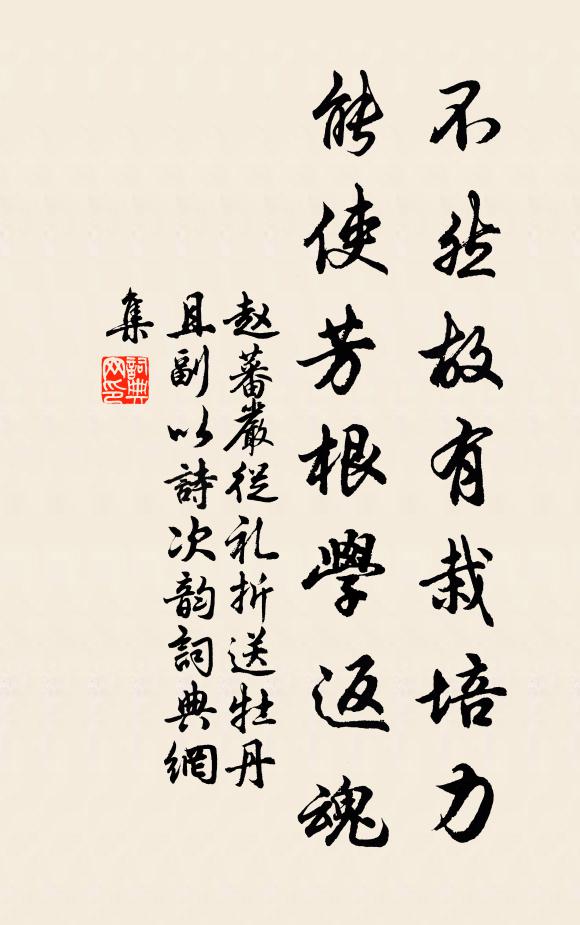 不然故有栽培力
能使芳根學返魂
赵蕃嚴從礼折送牡丹
且副以詩次韵詞典網
集
詞典
网印